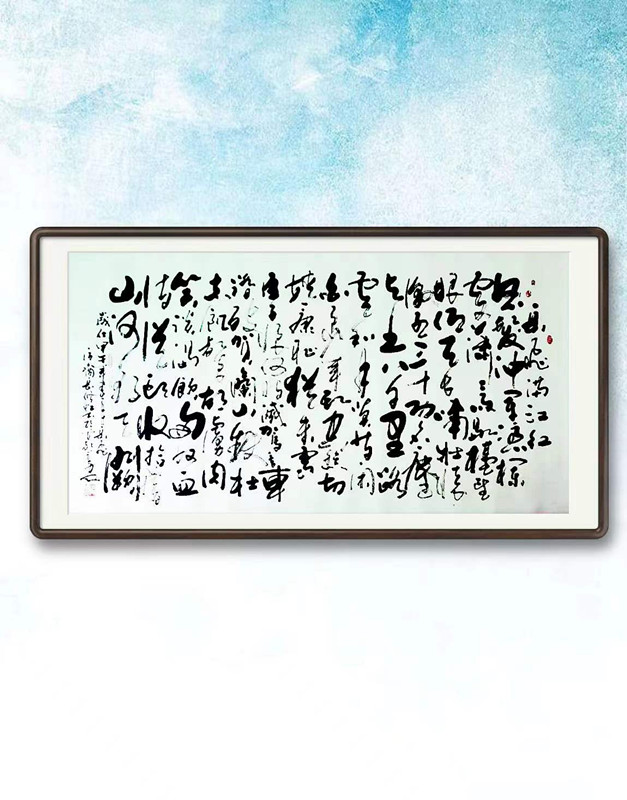 岳飛滿江紅
怒髮冲冠憑欄
處瀟瀟雨歇抬望
眼仰天長嘯壯懷
激烈三十功名塵
与土八千里路
雲和月莫等閑
白了少年頭空悲切
靖康耻猶未雪
臣子恨何時滅駕長車
踏破賀蘭山缺壯
志飢餐胡虜肉
笑談渴飲匈奴血
待從頭收拾舊
山河朝天闕